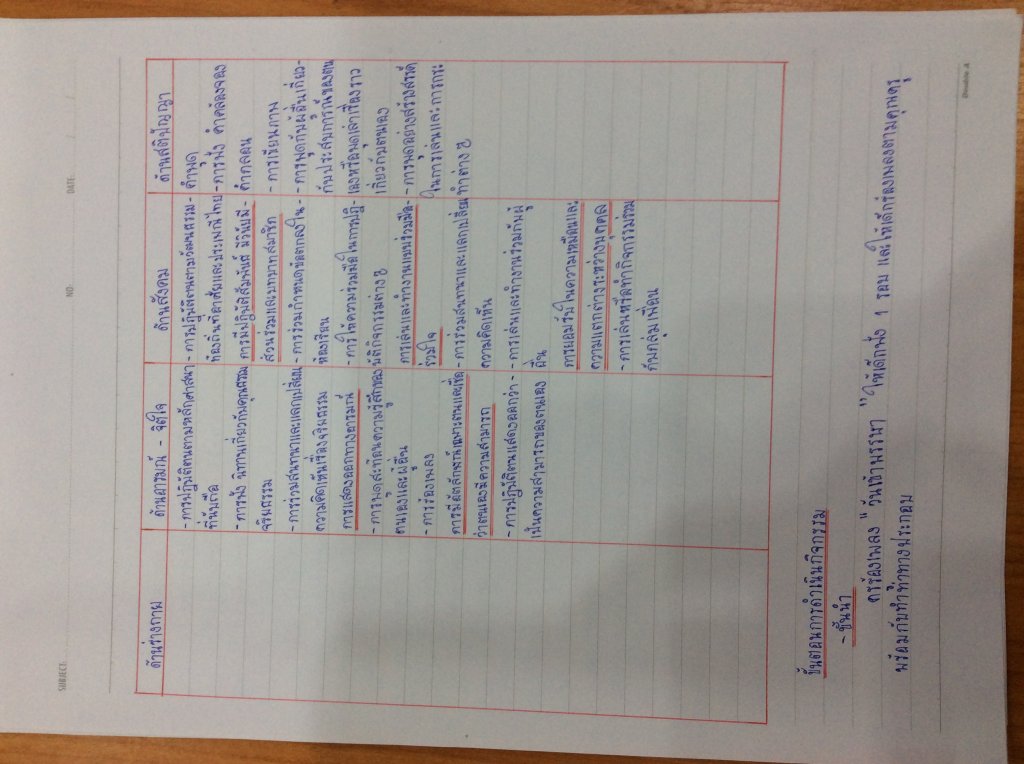 SUBJECT:
NO:
DATE:
ด้านร่างกาย
ด้านอารมณ์ - จิตใจ
- การปฏิบัติตนตามหลักศาสนา
ที่นับถือ
- การฟังนิทานเกี่ยวกับคุณธรรม
จริยธรรม
- การร่วมสนทนาและแลกเปลี่ยน
ความคิดเห็นเชิงจริยธรรม
การแสดงออกทางอารมณ์
- การพูดสะท้อนความรู้สึกของ
ตนเองและผู้อื่น
- การร้องเพลง
การมีอัตลักษณ์เฉพาะตนและเชื่อ
ว่าตนเองมีความสามารถ
- การปฏิบัติตนแสดงออกว่า
เป็นความสามารถของตนเอง
ด้านสังคม
- การปฏิบัติตนตามวัฒนธรรม
ท้องถิ่นที่อาศัยและประเพณีไทย
การมีปฏิสัมพันธ์ มีวินัย มี
ส่วนร่วมและบทบาทสมาชิก
- การร่วมกำหนดข้อตกลงใน
ห้องเรียน
- การให้ความร่วมมือในการปฏิ-
บัติกิจกรรมต่าง ๆ
การเล่นและทำงานแบบร่วมมือ-
ร่วมใจ
- การร่วมสนทนาและแลกเปลี่ยน
ความคิดเห็น
- การเล่นและทำงานร่วมกับผู้
อื่น
การยอมรับในความเหมือนและ
ความแตกต่างระหว่างบุคคล
- การเล่นหรือทำกิจกรรมร่วม
กับกลุ่มเพื่อน
ด้านสติปัญญา
คำพูด
- การฟัง คำคล้องจอง
คำกลอน
- การเขียนภาพ
- การพูดกับผู้อื่นเกี่ยว-
กับประสบการณ์ของตน
เองหรือพูดเล่าเรื่องราว
เกี่ยวกับตนเอง
- การพูดอย่างสร้างสรรค์
ในการเล่นและการกระ
ทำต่าง ๆ
ขั้นตอนการดำเนินกิจกรรม
- ขั้นนำ
ครูร้องเพลง "วันเข้าพรรษา" ให้เด็กฟัง 1 รอบ และให้เด็กร้องเพลงตามคุณครู
พร้อมกับทำท่าทางประกอบ
Double A